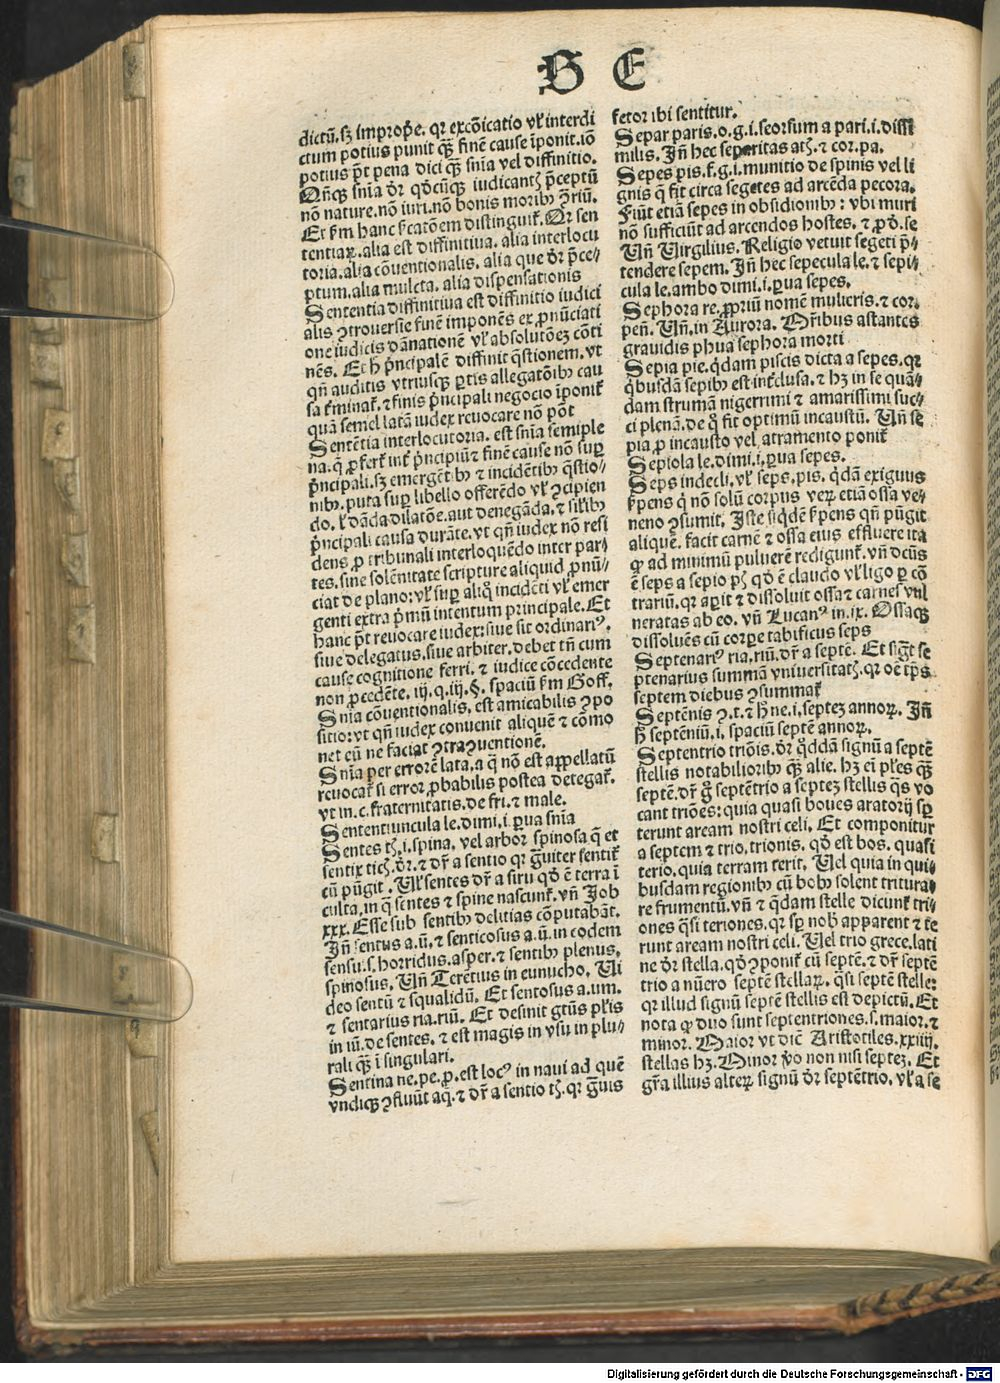 S E
dictũ. sȝ improp̃e. qꝛ excõicatio vl̕ interdi
ctum potius punit qꝫ finẽ cause ĩponit. iõ
potius p̃t pena dici qꝫ sñia vel diffinitio.
Oñ̃qꝫ sñia d̃r qd̕cũqꝫ iudicantꝭ p̃ceptũ
nõ nature. nõ iuri. nõ bonis moribꝰ ꝯ̃riũ.
Et ẜm hanc ẜcatõem distinguiť. Qꝛ sen
tentiaꝝ. alia est diffinitiua. alia interlocu
toria. alia cõuentionalis. alia que d̃r p̃ce-
ptum. alia mulcta. alia dispensationis
Sententia diffinitiua est diffinitio iudici
alis ꝯtrouersie finẽ imponẽs ex ꝓnũciati
one iudicis dãnationẽ vl̕ absolutõeȝ cõti
nẽs. Et h̕ p̃ncipalẽ diffinit q̃stionem. vt
qñ auditis vtriusqꝫ ꝑtis allegatõibꝰ cau
sa ẜminaẜ. ⁊ finis p̃ncipali negocio ĩponiť
quã semel latã iudex reuocare nõ põt
Sentẽtia interlocutoria. est sñia semiple
na. q̃ ꝓferť inť p̃ncipiũ ⁊ finẽ cause nõ suꝑ
p̃ncipali. sȝ emergẽtibꝰ ⁊ incidẽtibꝰ q̃stio-
nibꝰ. puta suꝑ libello offerẽdo vl̕ ꝯcipien
do. l̕ dãda dilatõe. aut denegãda. ⁊ sil̕ibꝰ
p̃ncipali causa durãte. vt qñ iudex nõ resi
dens ꝓ tribunali interloquẽdo inter par-
tes. sine solẽnitate scripture aliquid ꝓnũ-
ciat de plano: vl̕ suꝑ aliq̊ incidẽti vl̕ emer
genti extra p̃mũ intentum principale. Et
hanc p̃t reuocare iudex: siue sit ordinariꝰ.
siue delegatus. siue arbiter. debet tñ cum
cause cognitione ferri. ⁊ iudice cõcedente
non ꝓcedẽte. iij. q. iij. §. spaciũ ẜm Goff.
Sñia cõuentionalis. est amicabilis ꝯpo
sitio: vt qñ iudex conuenit aliquẽ ⁊ cõmo
net eũ ne faciat ꝯtra ꝯuentionẽ.
Sñia per errorẽ lata. a q̃ nõ est appellatũ
reuocať si error ꝓbabilis postea detegať.
vt in. c. fraternitatis. de fri. ⁊ male.
Sententiuncula le. dimi. i. ꝑua sñia
Sentes tꝭ. i. spina. vel arbor spinosa q̃ et
sentix ticꝭ. d̃r. ⁊ d̃r a sentio qꝛ g̃uiter sentiť
cũ pũgit. Vl̕ sentes d̃r a situ qd̕ ẽ terra ĩ
culta. in q̃ sentes ⁊ spine nascunť. vñ Job
xxx. Esse sub sentibꝰ delitias cõputabãt.
Jñ sentus a. ũ. ⁊ senticosus a. ũ. in eodem
sensu. s. horridus. asper. ⁊ sentibꝰ plenus.
spinosus. Vñ Terẽtius in eunucho. Vi
deo sentũ ⁊ squalidũ. Et sentosus a. um.
⁊ sentarius ria. riũ. Et desinit gtũs pl̕is
in iũ. de sentes. ⁊ est magis in vsu in plu-
rali qꝫ ĩ singulari.
Sentina ne. pe. ꝓ. est locꝰ in naui ad quẽ
vndiqꝫ ꝯfluũt aq̃. ⁊ d̃r a sentio tꝭ. qꝛ g̃uis
fetor ibi sentitur.
Separ paris. o. g. i. seorsum a pari. i. dissi
milis. Jñ hec separitas atꝭ. ⁊ cor. pa.
Sepes pis. f. g. i. munitio de spinis vel li
gnis q̃ fit circa segetes ad arcẽda pecora.
Fiũt etiã sepes in obsidionibꝰ: vbi muri
nõ sufficiũt ad arcendos hostes. ⁊ ꝓd̕. se
Vñ Virgilius. Religio vetuit segeti p̃-
tendere sepem. Jñ hec sepecula le. ⁊ sepi-
cula le. ambo dimi. i. ꝑua sepes.
Sephora re. ꝓpriũ nomẽ mulieris. ⁊ cor.
peñ. Vñ. in Aurora. Om̃ibus astantes
grauidis phua sephora morti
Sepia pie. q̃dam piscis dicta a sepes. qꝛ
q̃busdã sepibꝰ est inťclusa. ⁊ hȝ in se quã-
dam strumã nigerrimi ⁊ amarissimi suc-
ci plenã. de q̊ fit optimũ incaustũ. Vñ se
pia ꝓ incausto vel atramento poniť
Sepiola le. dimi. i. ꝑua sepes.
Seps indecli. vl̕ seps. pis. q̃dã exiguus
ẜpens q̃ nõ solũ corpus veꝝ etiã ossa ve-
neno ꝯsumit. Jste siq̃dẽ ẜpens qñ pũgit
aliquẽ. facit carnẽ ⁊ ossa eius effluere ita
ꝙ ad minimũ puluerẽ redigunť. vñ dc̃us
ẽ seps a sepio pꝭ qd̕ ẽ claudo vl̕ ligo ꝑ cõ
trariũ. qꝛ aꝑit ⁊ dissoluit ossa ⁊ carnes vul
neratas ab eo. vñ Lucanꝰ in. ix. Ossaqꝫ
dissoluẽs cũ corꝑe tabificus seps
Septenariꝰ ria. riũ. d̃r a septẽ. Et sigt̃ se
ptenarius summã vniuersitatꝭ. qꝛ oẽ tp̃s
septem diebus ꝯsummať
Septẽnis ꝯ. t. ⁊ h̕ ne. i. septeȝ annoꝝ. Jñ
h̕ septẽniũ. i. spaciũ septẽ annoꝝ.
Septentrio triõis. d̃r q̊ddã signũ a septẽ
stellis notabilioribꝰ qꝫ alie. hȝ eĩ pl̕es qꝫ
septẽ. d̃r g̊ septẽtrio a septeȝ stellis q̃s vo
cant triões: quia quasi boues aratorij sꝑ
terunt aream nostri celi. Et componitur
a septem ⁊ trio. trionis. qd̕ est bos. quasi
terio. quia terram terit. Vel quia in qui-
busdam regionibꝰ cũ bobꝰ solent tritura-
re frumentũ. vñ ⁊ q̃dam stelle dicunť tri-
ones q̃si teriones. qꝛ sꝑ nob̕ apparent ⁊ te
runt aream nostri celi. Vel trio grece. lati
ne d̃r stella. qd̕ ꝯponiť cũ septẽ. ⁊ d̃r septẽ
trio a nũero septẽ stellaꝝ. q̃si septẽ stelle:
qꝛ illud signũ septẽ stellis est depictũ. Et
nota ꝙ duo sunt septentriones. s. maior. ⁊
minor. Maior vt dic̃ Aristotiles. xxiiij.
stellas hȝ. Minor ꝟo non nisi septeȝ. Et
gr̃a illius alteꝝ signũ d̃r septẽtrio. vl̕ a se
Digitalisierung gefördert durch die Deutsche Forschungsgemeinschaft - DFG